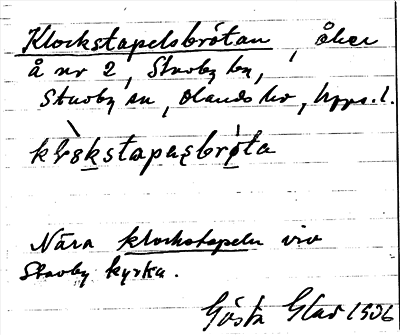 Klockstapelsbråtan, åker
å nr 2, Stavby by,
Stavby sn, Olands hd, Upps. l.
Nära klockstapeln vid
Stavby kyrka.
Gösta Glad 1936